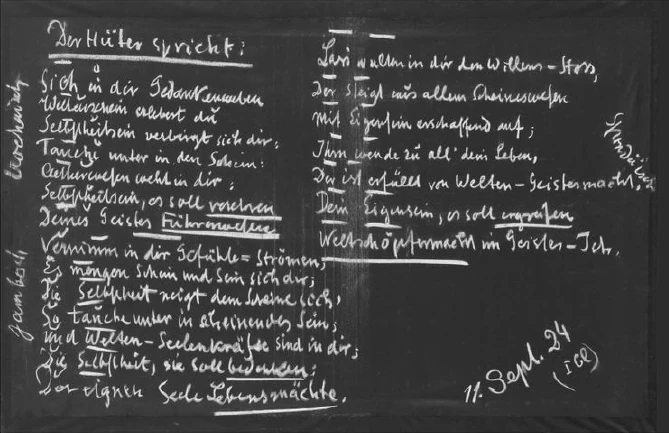 Der Hüter spricht:
trochäisch
Sieh in dir Gedankenweben
Weltenschein erlebest du
Selbstheitsein verbirgt sich dir;
Tauche unter in den Schein:
Aetherwesen weht in dir;
Selbstheitsein, es soll verehren
Deines Geistes Führerwesen.
jambisch
Vernimm in dir Gefühle-Strömen;
Es mengen Schein und Sein sich dir,
Die Selbstheit neigt dem Scheine sich;
So tauche unter in scheinendes Sein;
und Welten-Seelenkräfte sind in dir;
Die Selbstheit, sie soll bedenken:
Der eignen Seele Lebensmächte.
Lass walten in dir den Willens-Stoss,
Der steigt aus allem Scheineswesen
Mit Eigensein erschaffend auf;
Ihm wende zu all' dein Leben,
Der ist erfüllt von Welten-Geistesmacht;
Dein Eigensein, es soll ergreifen
Weltschöpfermacht im Geistes-Ich.
Spondäisch
11. Sept. 24